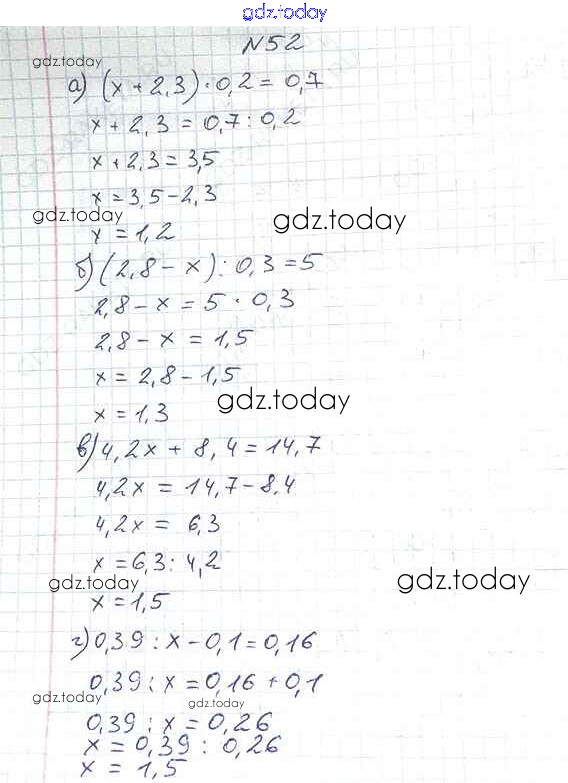 gdz.today
N52
gdz.today
а) (x + 2,3) · 0,2 = 0,7
x + 2,3 = 0,7 : 0,2
x + 2,3 = 3,5
x = 3,5 - 2,3
gdz.today
gdz.today
x = 1,2
б) (2,8 - x) : 0,3 = 5
2,8 - x = 5 · 0,3
2,8 - x = 1,5
x = 2,8 - 1,5
gdz.today
x = 1,3
в) 4,2x + 8,4 = 14,7
4,2x = 14,7 - 8,4
4,2x = 6,3
x = 6,3 : 4,2
gdz.today
gdz.today
x = 1,5
г) 0,39 : x - 0,1 = 0,16
0,39 : x = 0,16 + 0,1
gdz.today
gdz.today
0,39 : x = 0,26
x = 0,39 : 0,26
x = 1,5